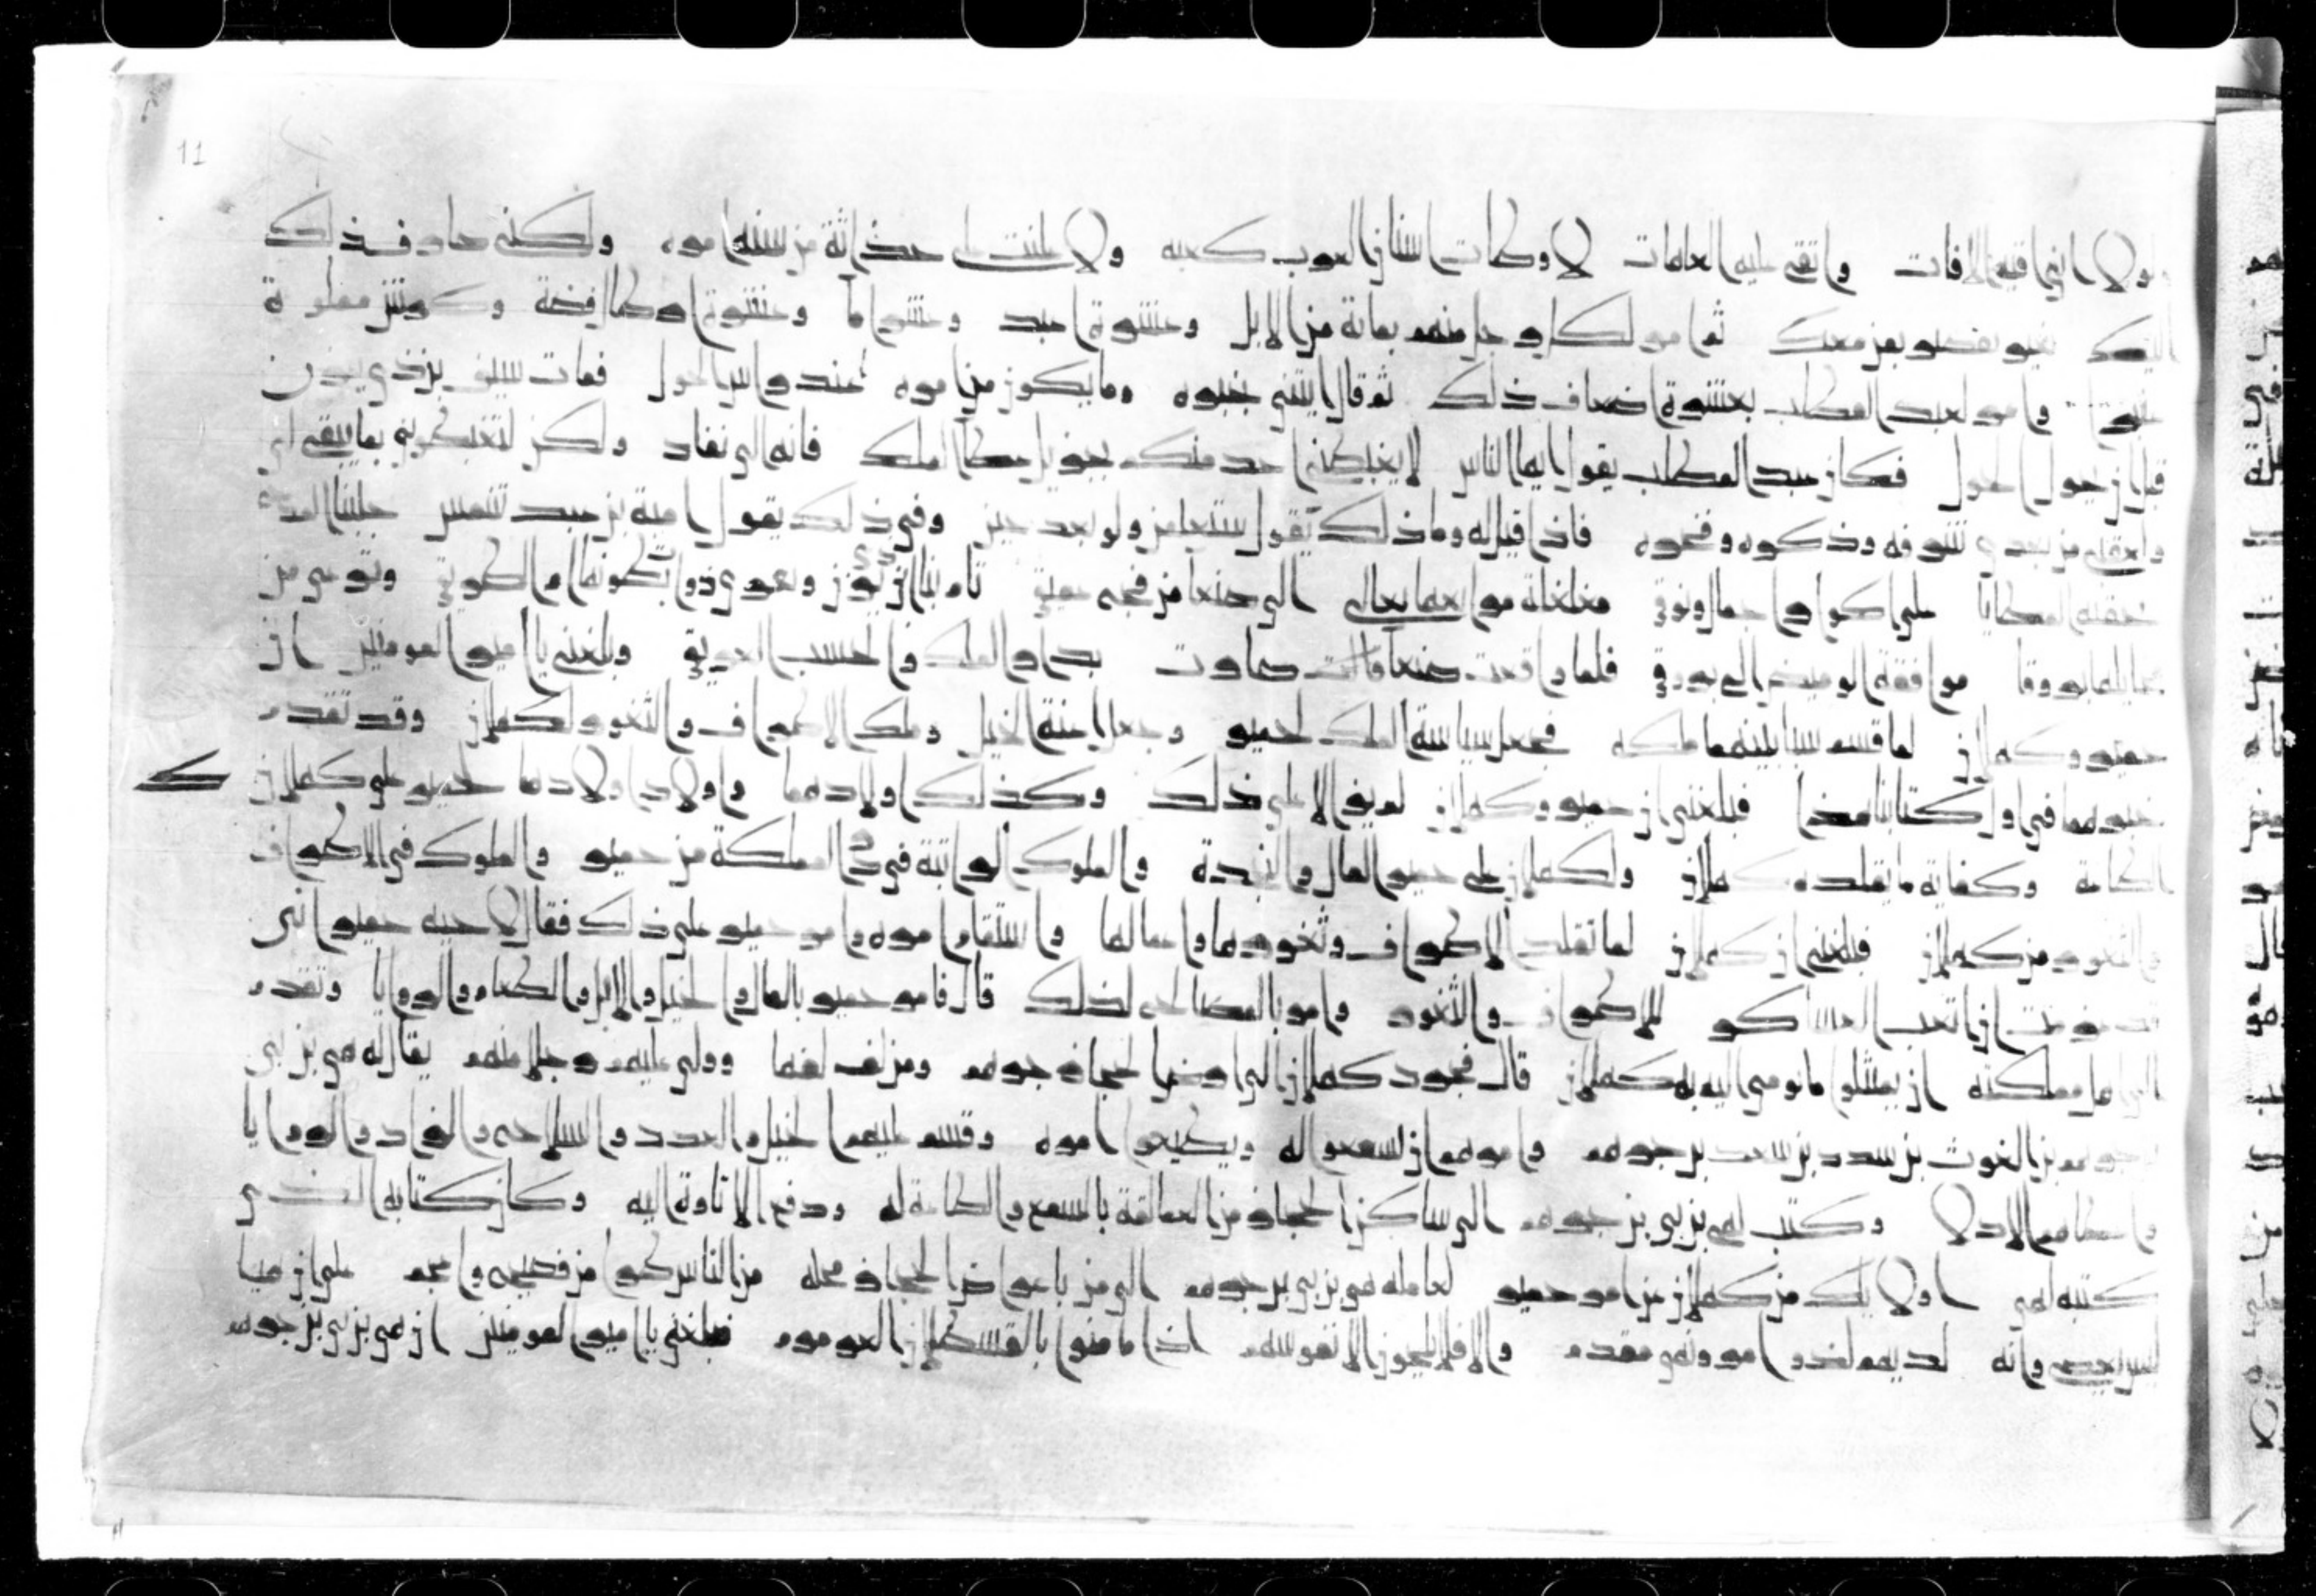 11
ولولا اني اقيه الافات واتقي عليه العاهات لاوطات اسنان العرب كعبه ولاعلنت على حداثة من سنه امره ولكنه صار في ذلك
اليك بخير يفصلو بعز معك ثم امر لكل رجل منهم بمائة من الابل وعشرة اعبد وعشر اما وعشرة ارطال فضة وكرش مملوة
عنبرا وامر لعبد المطلب بعشرة اضعاف ذلك ثم قال ايتني بخبره وما يكون من امره عند راس الحول فمات سيف بن ذي يزن
قبل ان يحول الحول فكان عبد المطلب يقول ايها الناس لا يغبطني احد منكم بجزيل عطا الملك فانه الى نفاد ولكن لتغبطوني بما يبقى لي
ولعقبي من بعدي شرفه وذكره وفخره فاذا قيل له وما ذلك يقول ستعلمن ولو بعد حين وفي ذلك يقول امية بن عبد شمس جلبنا المدح
تحقبه المطايا على اكوار اجمال ونوق مغلغلة مرابعها تعالى الى صنعا من فج عميق تام بنا ابن ذي يزن وتفري ذوات بطونها ام الطريق وترعى من
مخايله بروقا موافقة الوميض الى بروق فلما واقعت صنعا صارت بدار الملك والحسب العريق وبلغني يا امير المومنين ان
حمير وكهلان لما قسم سبا بينهما ملكه فجعل سياسة الملك لحمير وجعل اعنة الخيل وملك الاطراف والثغور لكهلان وقد تقدم
خبرهما في اول كتابنا هذا فبلغني ان حمير وكهلان لم يزالا على ذلك وكذلك اولادهما واولاد اولادهما لحمير على كهلان
الطاعة وكفاية ما يقلده كهلان ولكهلان على حمير المال والنجدة والملوك الراتبة في دار المملكة من حمير والملوك في الاطراف
والثغور من كهلان فبلغني ان كهلان لما تقلد الاطراف وثغورها واعمالها واستقام امره وامر حمير على ذلك فقال لاخيه حمير اني
قد عزمت ان اتعب العساكر للاطراف والثغور وامر بالمصالح لذلك قال فامر حمير بالمال والخيل والابل والطعام والروايا وتقدم
الى اهل مملكته ان يمتثلوا ما يومي اليه به كهلان قال فجرد كهلان الى ارض الحجاز جرهم ومن لف لفها وولى عليهم رجلا منهم يقال له هي بن بي
بن جرهم بن الغوث بن سدد بن سعد بن جرهم وامرهم ان يسمعوا له ويطيعوا امره وقسم عليهم الخيل والعدد والسلاح والزاد والروايا
واعطاهم الادلا وكتب لهي بن بي بن جرهم الى ساكن الحجاز من العمالقة بالسمع والطاعة له ودفع الاتاوة اليه وكان كتابه الذي
كتبه لهي اولايك من كهلان من امر حمير لعامله هي بن بي بن جرهم الى من باعراض الحجاز محله من الناس طرا من فصيح واعجم على ان هيا
ليس يعصى وانه لديهم لذو امر ونهي مقدم والا فلا يلحون الا نفوسهم اذا ما منوا بالقسطلان العرمرم فبلغني يا امير المومنين ان هي بن بي بن جرهم